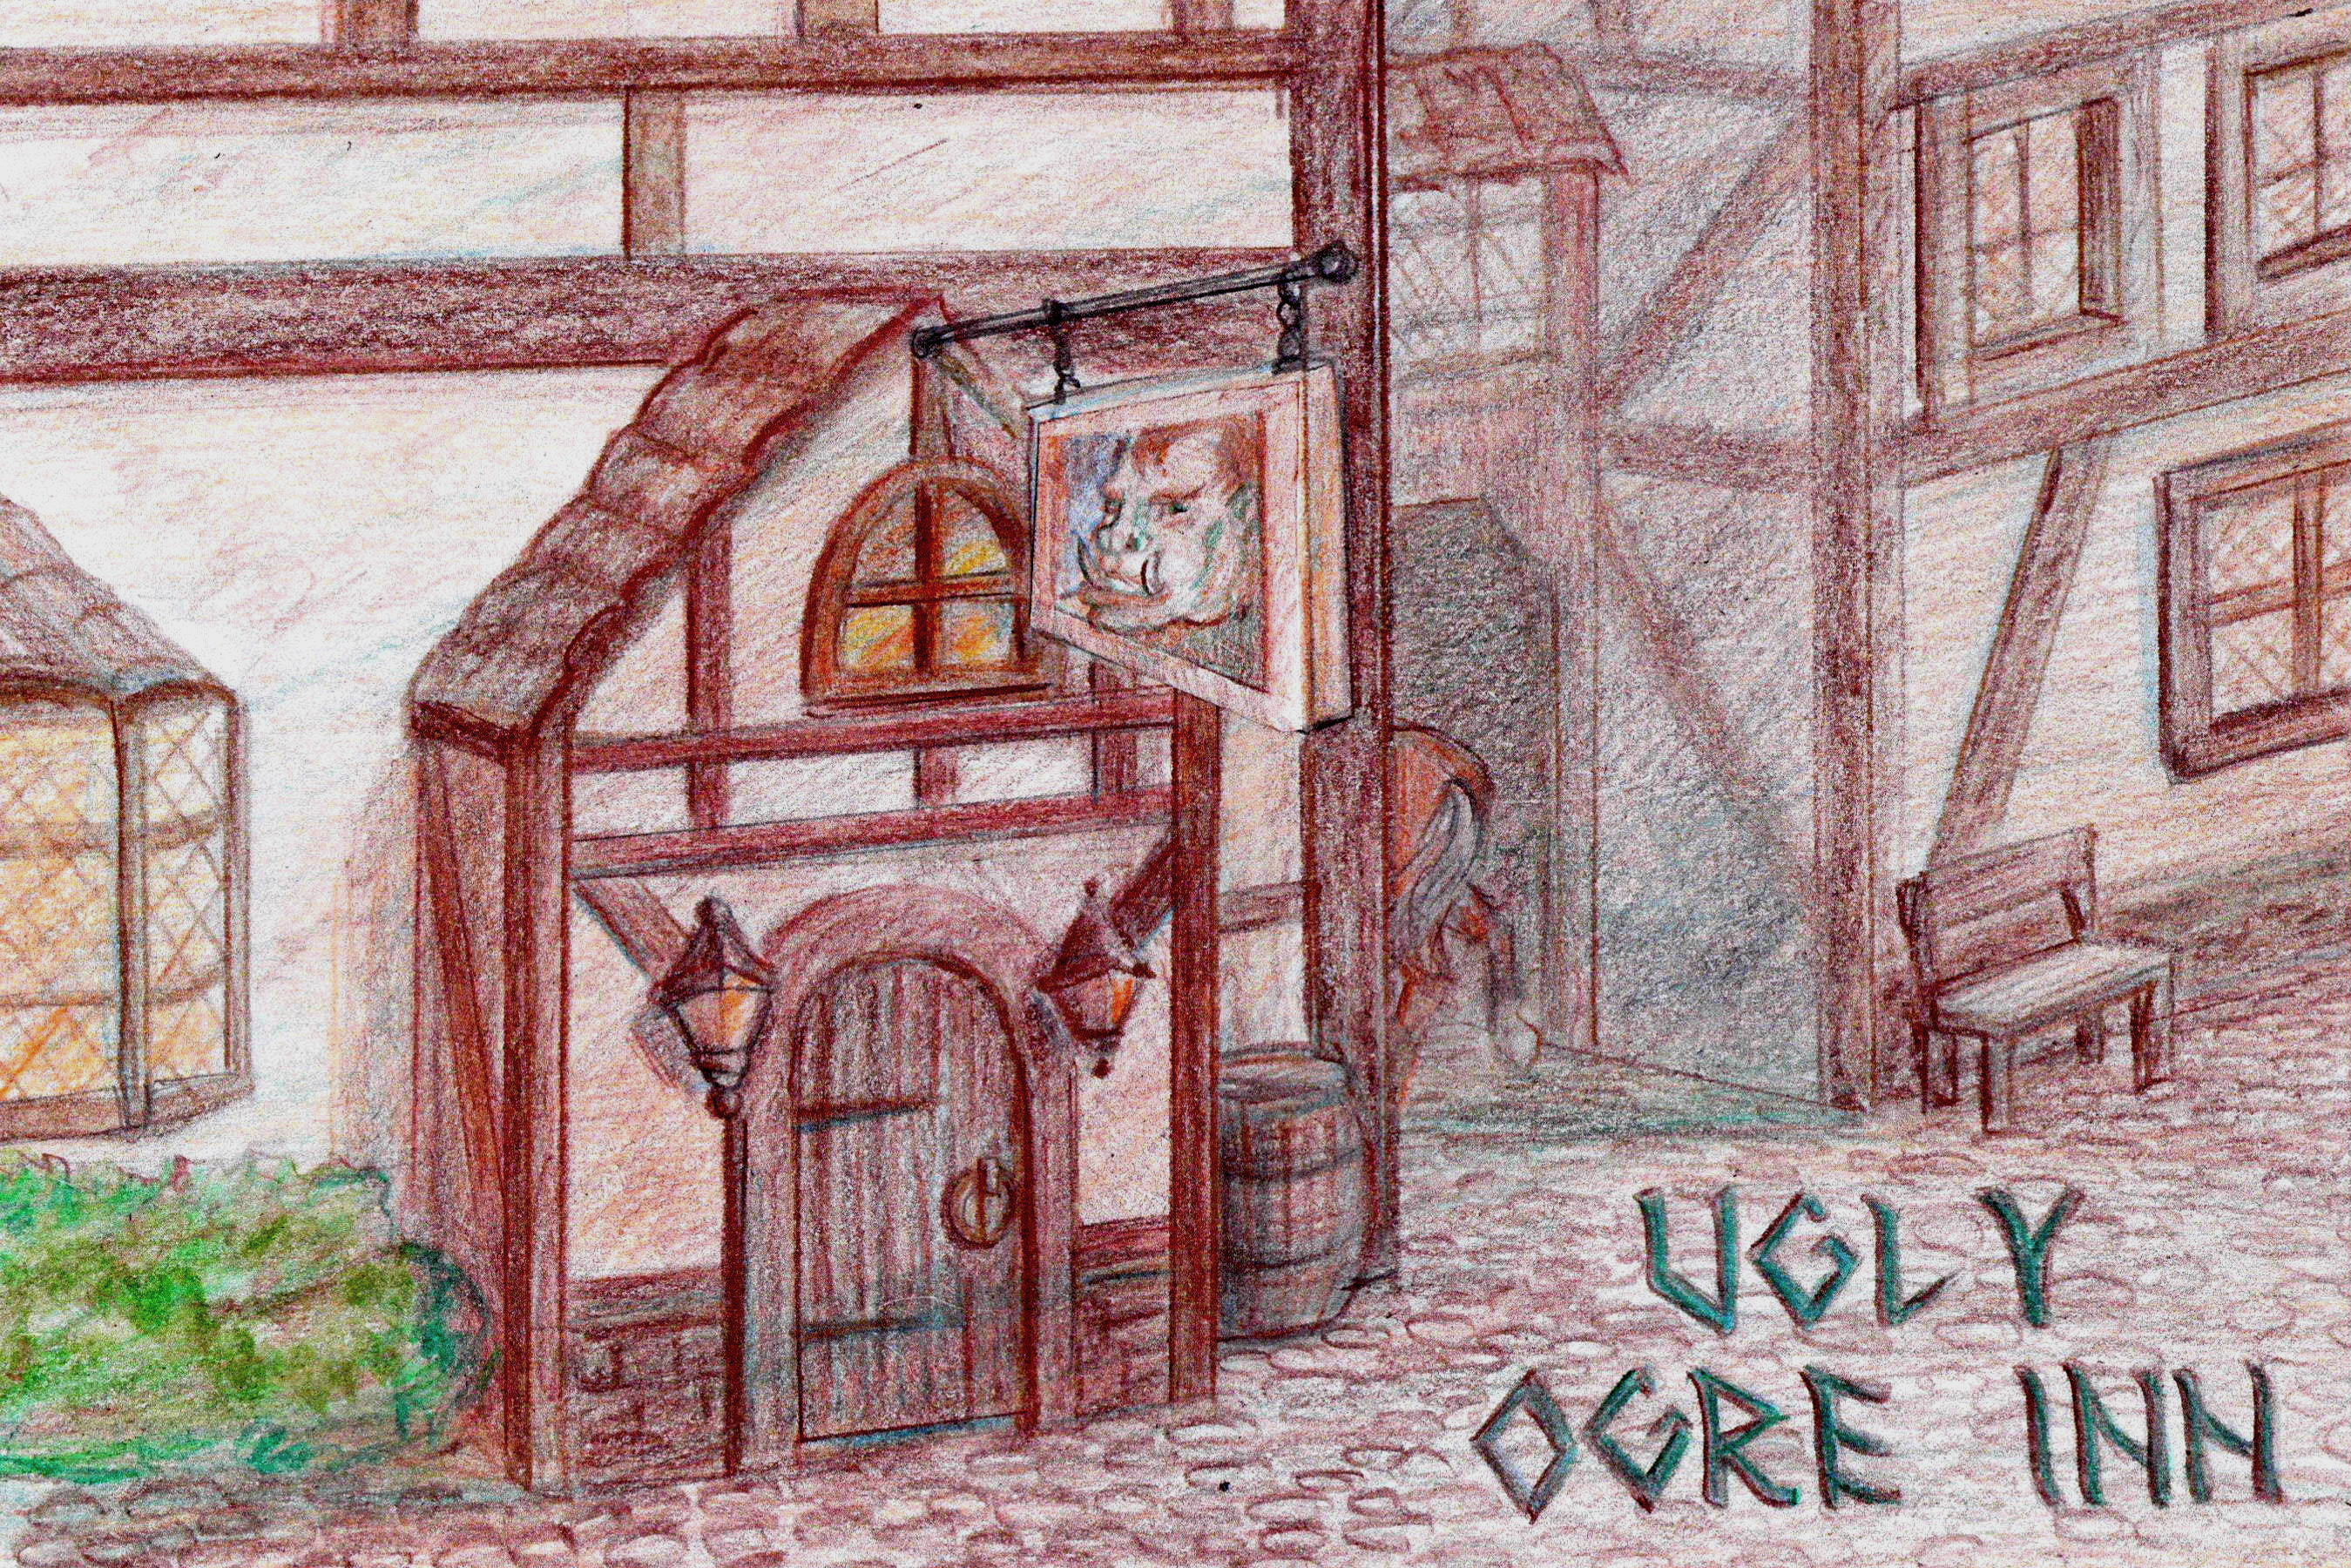 UGLY
OGRE INN